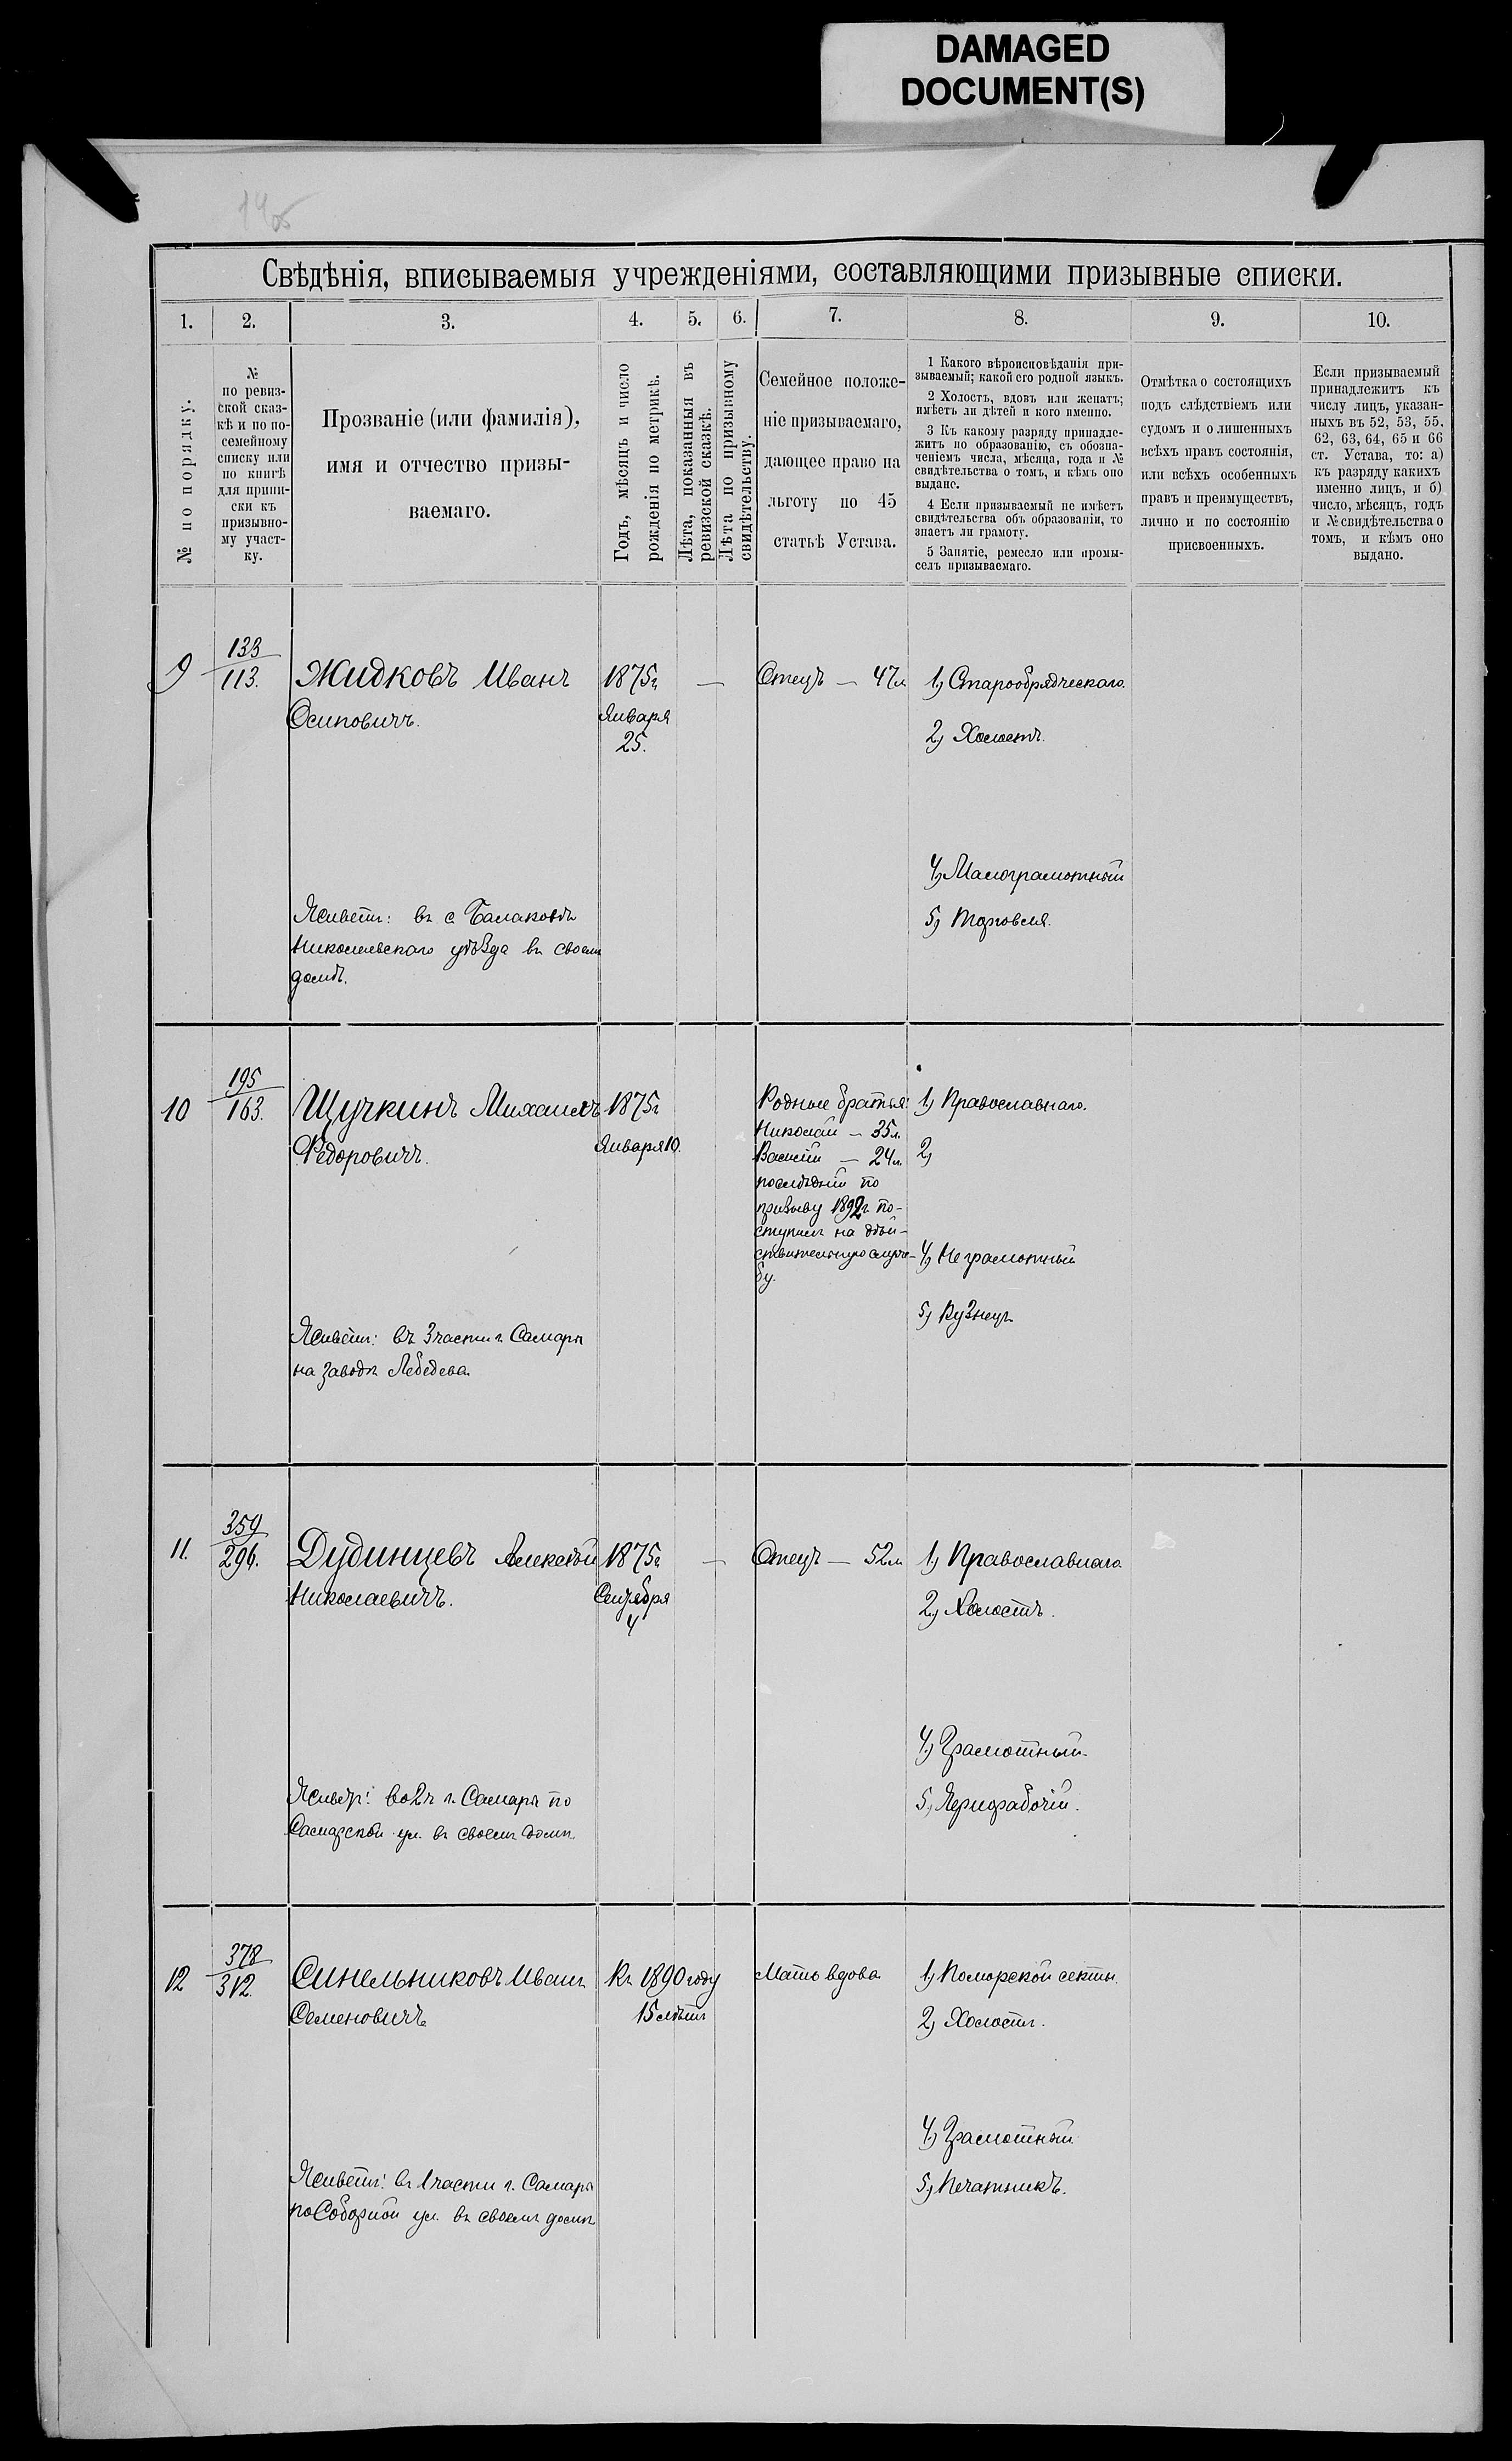 DAMAGED
DOCUMENT(S)
Свѣдѣнія, вписываемыя учрежденіями, составляющими призывные списки.
1. 2. 3. 4. 5. 6. 7. 8. 9. 10.
№ по порядку.
№
по ревиз-
ской сказ-
кѣ и по по-
семейному
списку или
по книгѣ
для припи-
ски къ
призывно-
му участ-
ку.
Прозваніе (или фамилія),
имя и отчество призы-
ваемаго.
Годъ, мѣсяцъ и число
рожденія по метрикѣ.
Лѣта, показанныя въ
ревизской сказкѣ.
Лѣта по призывному
свидѣтельству.
Семейное положе-
ніе призываемаго,
дающее право на
льготу по 45
статьѣ Устава.
1 Какого вѣроисповѣданія при-
зываемый; какой его родной языкъ.
2 Холостъ, вдовъ или женатъ;
имѣетъ ли дѣтей и кого именно.
3 Къ какому разряду принадле-
житъ по образованію, съ обозна-
ченіемъ числа, мѣсяца, года и №
свидѣтельства о томъ, и кѣмъ оно
выдано.
4 Если призываемый не имѣетъ
свидѣтельства объ образованіи, то
знаетъ ли грамоту.
5 Занятіе, ремесло или промы-
селъ призываемаго.
Отмѣтка о состоящихъ
подъ слѣдствіемъ или
судомъ и о лишенныхъ
всѣхъ правъ состоянія,
или всѣхъ особенныхъ
правъ и преимуществъ,
лично и по состоянію
присвоенныхъ.
Если призываемый
принадлежитъ къ
числу лицъ, указан-
ныхъ въ 52, 53, 55,
62, 63, 64, 65 и 66
ст. Устава, то: а)
къ разряду какихъ
именно лицъ, и б)
число, мѣсяцъ, годъ
и № свидѣтельства о
томъ, и кѣмъ оно
выдано.
9
133
113.
Жидковъ Иванъ
Осиповичъ.
Живетъ: въ с. Балаковѣ
Николаевскаго уѣзда въ своемъ
домѣ.
1875г
Января
25.
—
Отецъ — 47л
1) Старообрядческаго.
2) Холостъ.
4) Малограмотный
5) Торговля.
10
195
163.
Щучкинъ Михаилъ
Федоровичъ.
Живетъ: въ 3 части г. Самары
на заводѣ Лебедева
1875г
Января 10.
Родные братья:
Николай — 35л.
Василій — 24л.
послѣдній по
призыву 1892г по-
ступилъ на дѣй-
ствительную служ-
бу.
1) Православнаго.
2)
4) Неграмотный
5) Кузнецъ
11.
359
296.
Дудинцевъ Алексѣй
Николаевичъ.
Живетъ: во 2ч г. Самары по
Самарской ул. въ своемъ домѣ.
1875г
Сентября
4
—
Отецъ — 52л
1) Православнаго
2) Холостъ.
4) Грамотный.
5) Чернорабочій.
12
378
312.
Синельниковъ Иванъ
Семеновичъ
Живетъ: въ 1 части г. Самары
по Соборной ул. въ своемъ домѣ
Къ 1890 году
15 лѣтъ
Мать вдова
1) Поморской секты.
2) Холостъ.
4) Грамотный
5) Печатникъ.